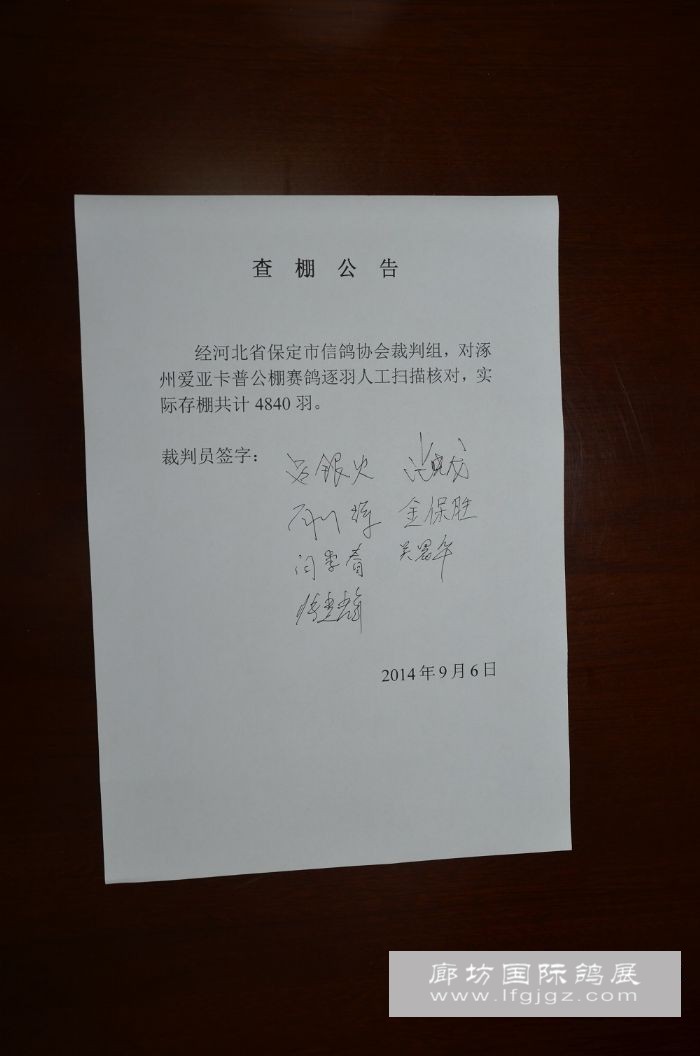 查棚公告
经河北省保定市信鸽协会裁判组，对涿
州爱亚卡普公棚赛鸽逐羽人工扫描核对，实
际存棚共计 4840 羽。
裁判员签字：
吕银火
金保胜
闫季春
2014 年 9 月 6 日
廊坊国际鸽展
www.lfgjgz.com